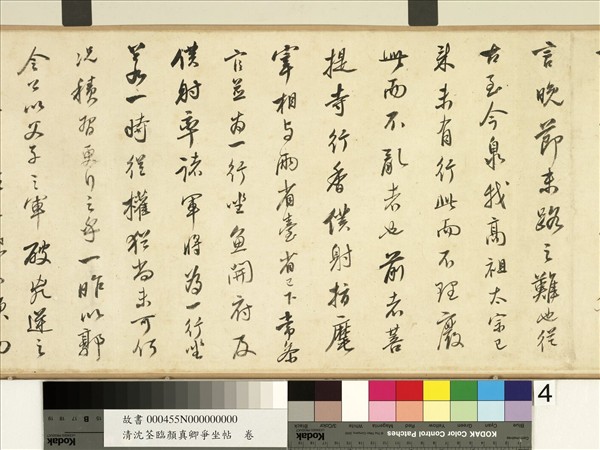 言晚節末路之難也從
古至今泉我高祖太宗已
來未有行此而不理廢
此而不亂者也前者菩
提寺行香僕射指麾
宰相与兩省臺省已下常參
官並為一行坐魚開府及
僕射率諸軍將為一行坐
若一時從權猶尚未可何
況積習更行之乎一昨以郭
令公以父子之軍破逆之
4
故書 000455N000000000
清沈荃臨顏真卿爭坐帖 卷
Kodak
KODAK Color Control Patches
Blue Cyan Green Yellow Red Magenta White 3/Color Black
Kodak